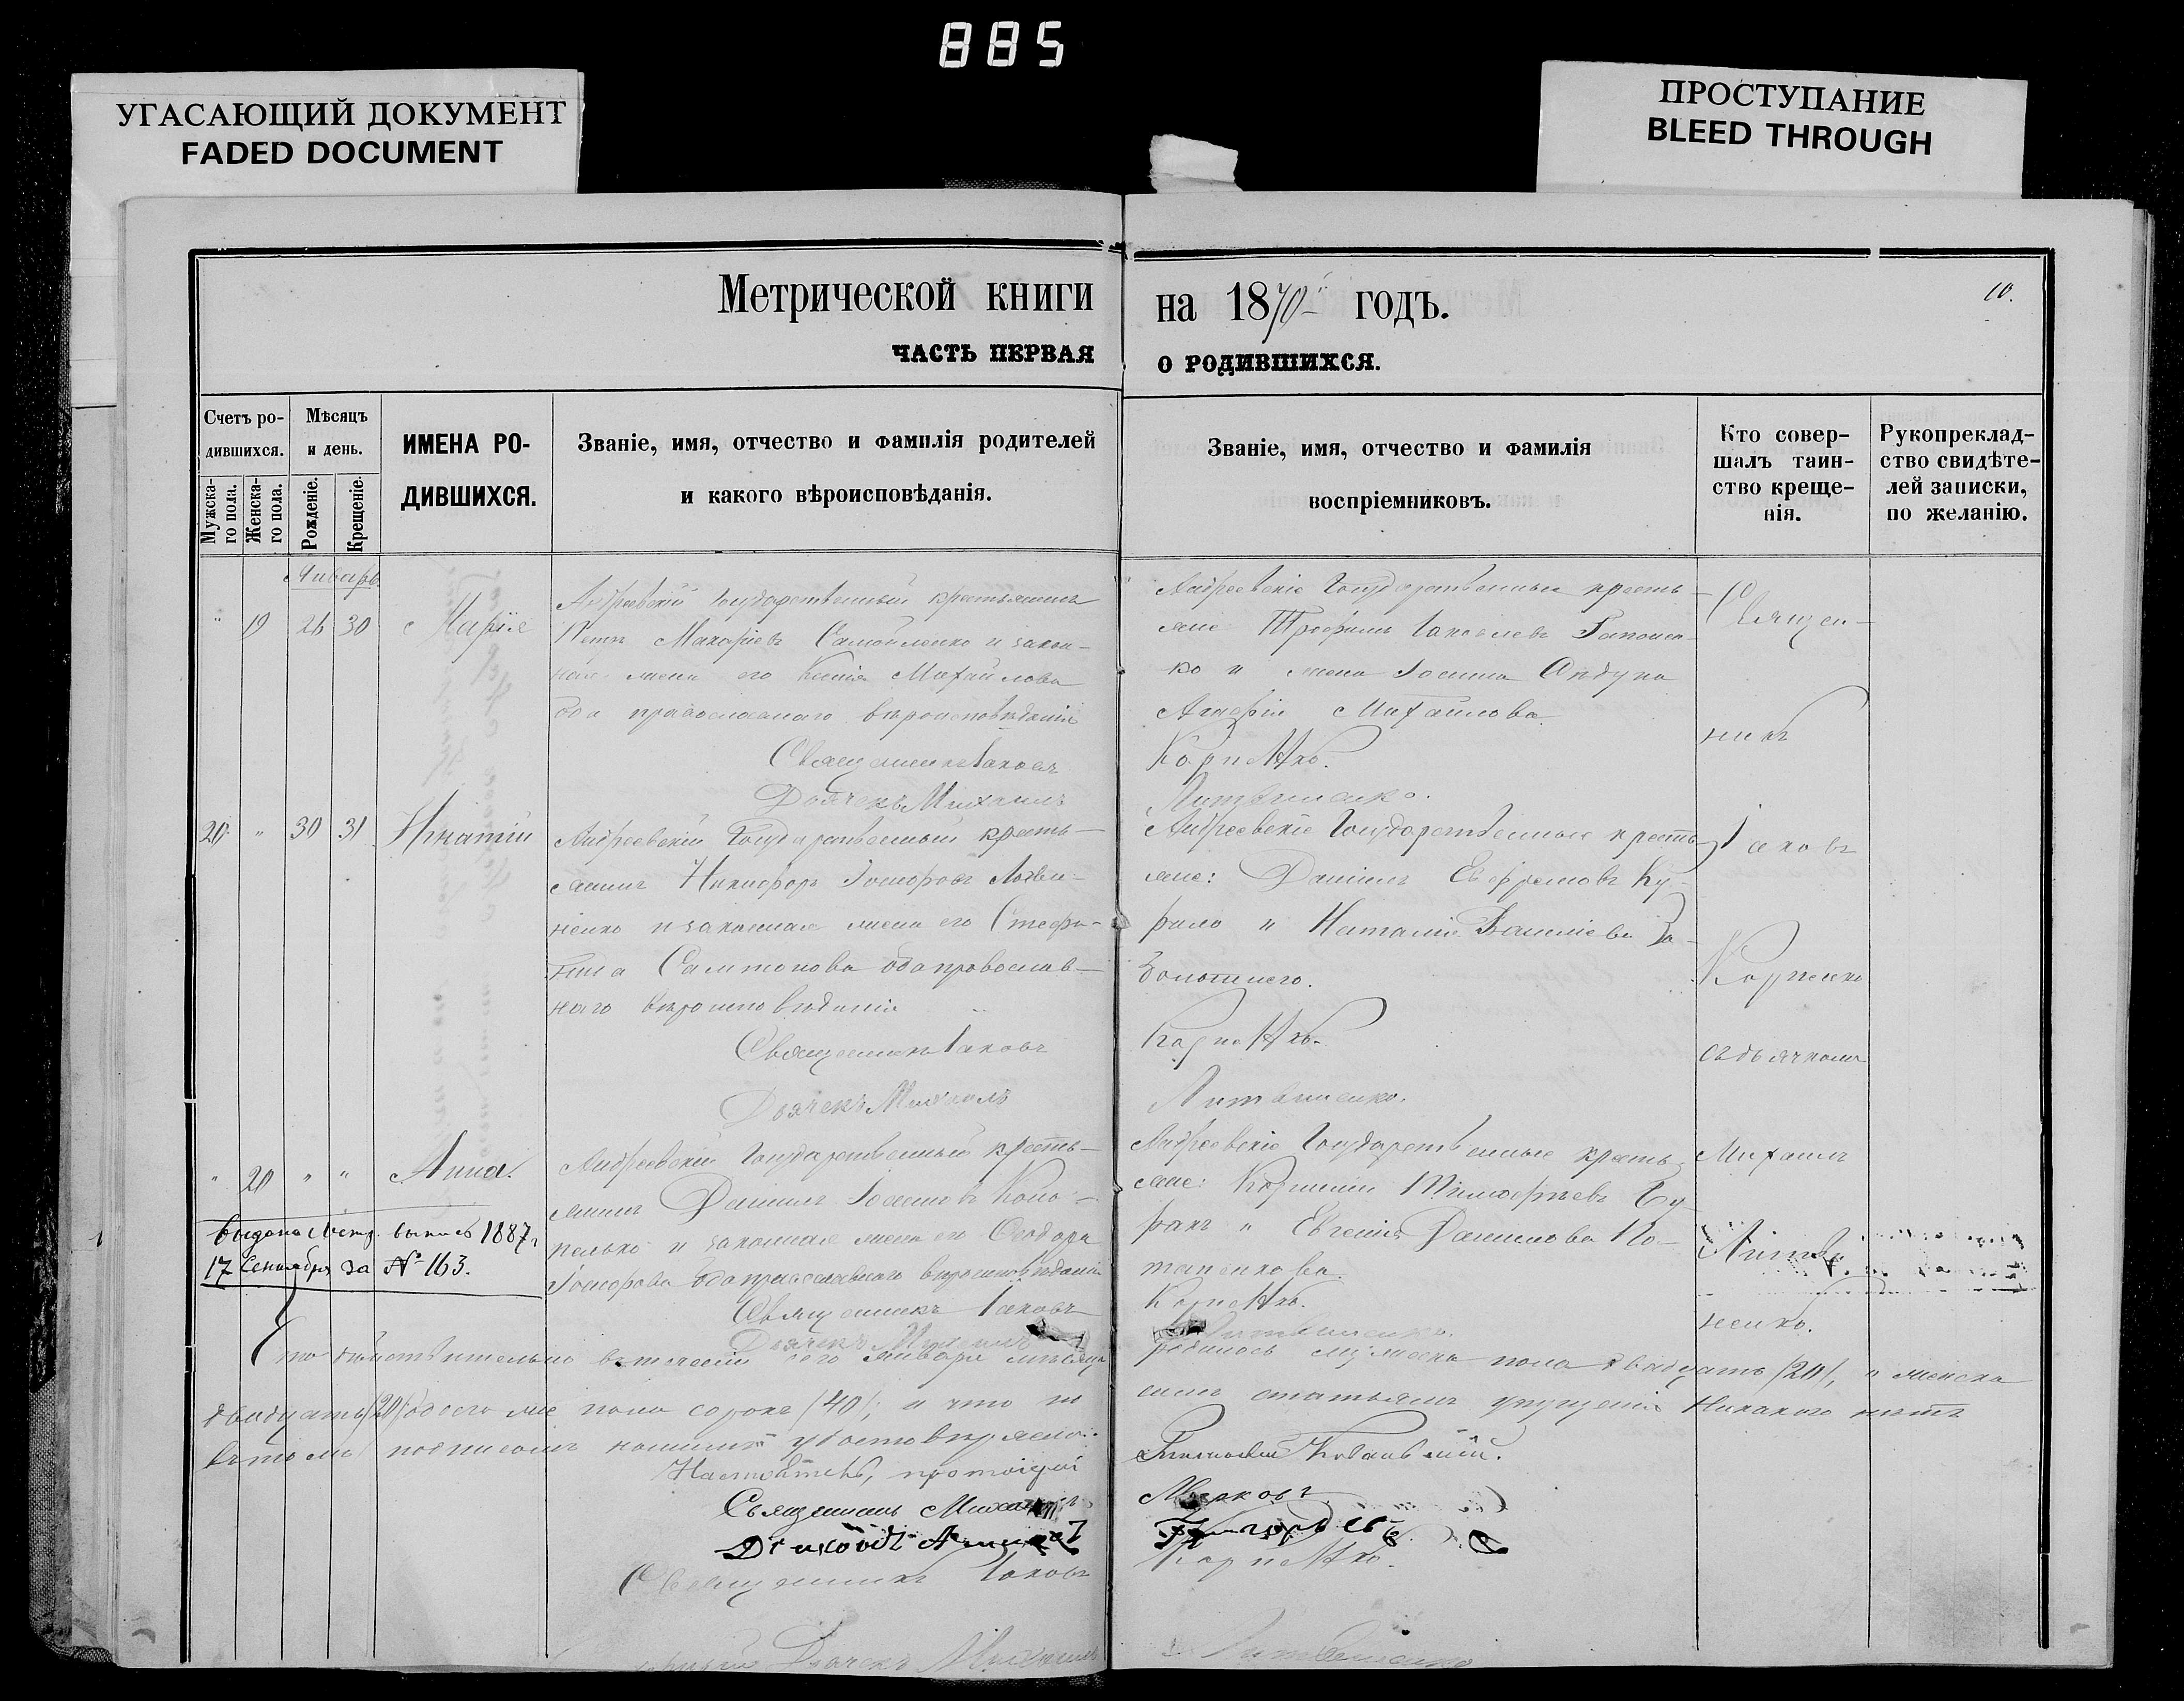 885
УГАСАЮЩИЙ ДОКУМЕНТ
FADED DOCUMENT
ПРОСТУПАНИЕ
BLEED THROUGH
Метрической книги на 1870 годъ.
10.
ЧАСТЬ ПЕРВАЯ О РОДИВШИХСЯ.
Счетъ родившихся.
Мужска-
го пола.
Женска-
го пола.
Мѣсяцъ
и день.
Рожденіе.
Крещеніе.
ИМЕНА РО-
ДИВШИХСЯ.
Званіе, имя, отчество и фамилія родителей
и какого вѣроисповѣданія.
Званіе, имя, отчество и фамилія
воспріемниковъ.
Кто совер-
шалъ таин-
ство креще-
нія.
Рукопреклад-
ство свидѣте-
лей записки,
по желанію.
Январь
" 19 26 30 Марія
Андреевскій Государственный крестьянинъ
Петръ Макаріевъ Самойленко и закон-
ная жена его Ксенія Михайлова
оба православнаго вѣроисповѣданія
Священникъ Іаковъ
Дьячекъ Михаилъ
Андреевскіе Государственные кресть-
яне Трофимъ Гапонен-
ко и жена
Михайлова
Карпенко.
Литвиненко.
20 " 30 31 Игнатій
Андреевскій Государственный кресть-
янинъ Никифоръ Литви-
ненко и законная жена его Стефа-
нида оба православ-
наго вѣроисповѣданія
Священникъ Іаковъ
Дьячекъ Михаилъ
Андреевскіе Государственные кресть-
яне: Даніилъ Ефремовъ Ку-
рило и Наталія За-
Карпенко.
Литвиненко.
" 20 " " Анна.
Андреевскій Государственный кресть-
янинъ Даніилъ Коно-
и законная жена его Ѳеодора
оба православнаго вѣроисповѣданія
Священникъ Іаковъ
Дьячекъ Михаилъ
Андреевскіе Государственные кресть-
яне:
и Евгенія Данилова По-
тапенкова.
Карпенко.
Литвиненко.
Священ-
никъ
Іаковъ
Карпенко
съ дьячкомъ
Михаиломъ
Литви-
ненко.
Выдана Метр. выпись 1887 г.
17 Сентября за № 163.
Что дѣйствительно въ теченіи сего Января мѣсяца родилось мужеска пола двадцать /20/, и женска
двадцать /20/ обоего же пола сорокъ /40/, и что по симъ статьямъ упущенія никакого нѣтъ
въ томъ подписомъ нашимъ удостовѣряемъ:
Настоятель, протоіерей
Священникъ Михаилъ
Священникъ Іаковъ Карпенко.
Дьячекъ Михаилъ Литвиненко